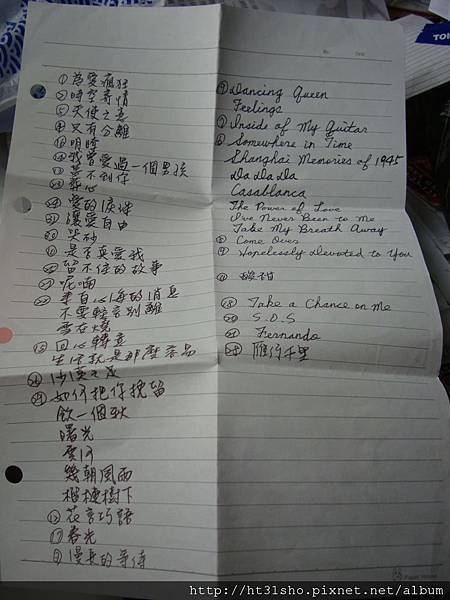 ① 為愛瘋狂
② 時空寄情
⑤ 天使之意
只有分離
明時
我曾愛過一個男孩
愛不到你
愛的
讓愛自由
哭砂
是否真愛我
留不住的故事
呢喃
來自心海的消息
不要輕言別離
雪在燒
回心轉意
生活就是那麼容易
沙漠之
如何把你挽留
飲一個秋
曙光
雲河
幾朝風雨
橄欖樹下
花言巧語
⑰ 春光
漫長的等待
Dancing Queen
Feelings
Inside of My Guitar
Somewhere in Time
Shanghai Memories of 1945
Da Da Da
Casablanca
The Power of Love
I've Never Been to Me
Take My Breath Away
Come Over
Hopelessly Devoted to You
酸甜
Take a Chance on Me
S.O.S
Fernando
雁行千里
TOK
http://ht31sho.pixnet.net/album